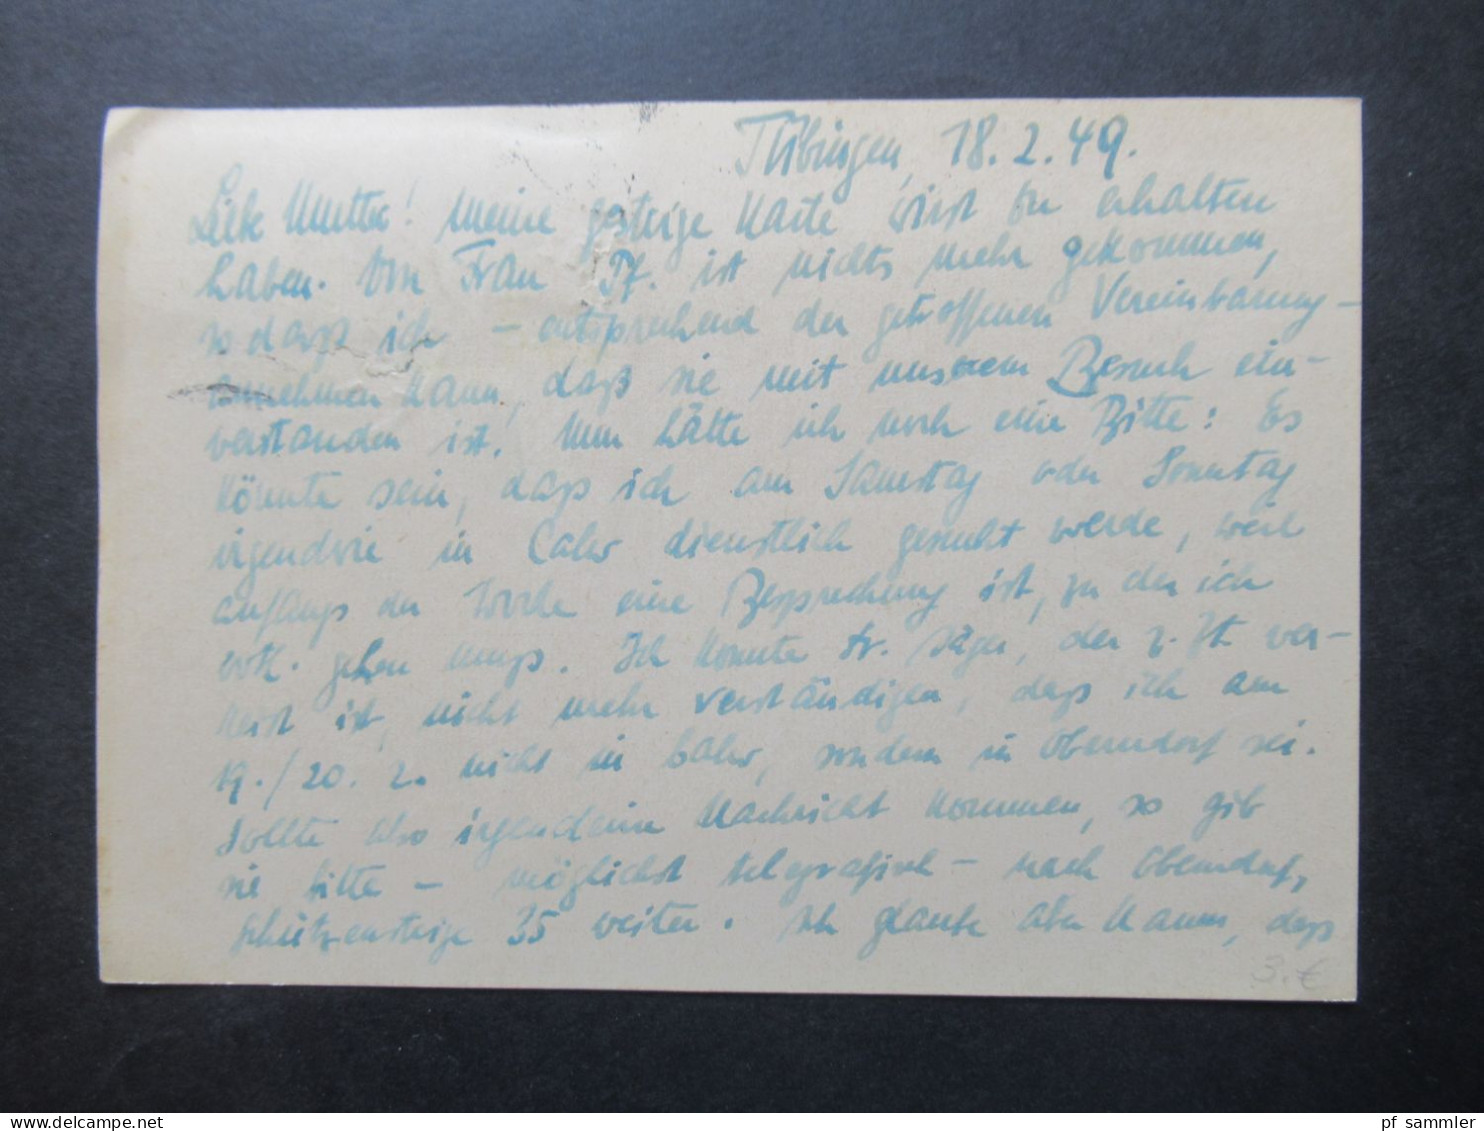 Tübingen, 18.2.49.
Liebe Mutter! Meine gestrige Karte wirst Du erhalten
haben. Von Frau Pf. ist nichts mehr gekommen,
sodass ich – entsprechend der getroffenen Vereinbarung –
annehmen kann, daß sie mit unserem Besuch ein-
verstanden ist. Nun hätte ich noch eine Bitte: Es
könnte sein, dass ich am Samstag oder Sonntag
irgendwie in Calw dienstlich gesucht werde, weil
anfangs der Woche eine Besprechung ist, zu der ich
evtl. gehen muss. Ich konnte Hr. Jäger, der z. Zt. ver-
reist ist, nicht mehr verständigen, dass ich am
19./20. 2. nicht in Calw, sondern in Oberndorf sei.
Sollte also irgendeine Nachricht kommen, so gib
sie bitte – möglichst telegrafisch – nach Oberndorf,
Schützensteige 35 weiter. Ich glaube aber kaum, dass
3.€
pf sammler